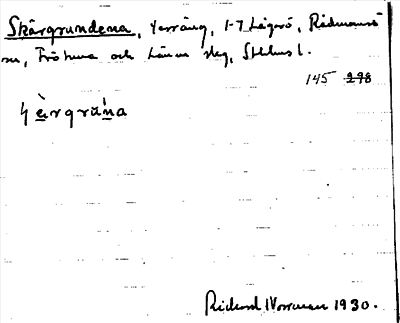 Skärgrundena, Yerräng, 1-7 Lågarö, Rådmansö
sn, Frötuna och Länna slg, Sthlms l.
145 298
ɧèrgrùna
Rickard Norrman 1930.